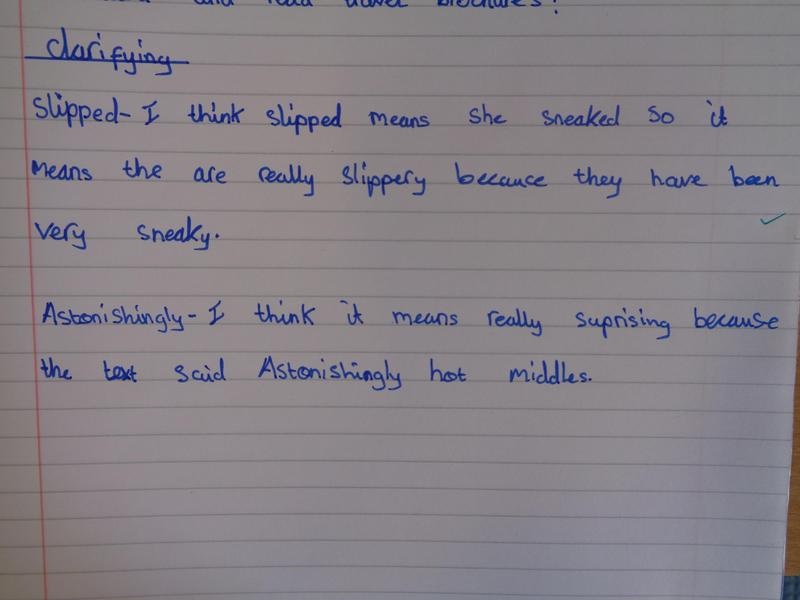 and read travel brochures?
clarifying
Slipped- I think slipped means she sneaked so it
means the are really slippery becaunce they have been
very sneaky.
Astonishingly- I think it means really suprising because
the text said Astonishingly hot middles.